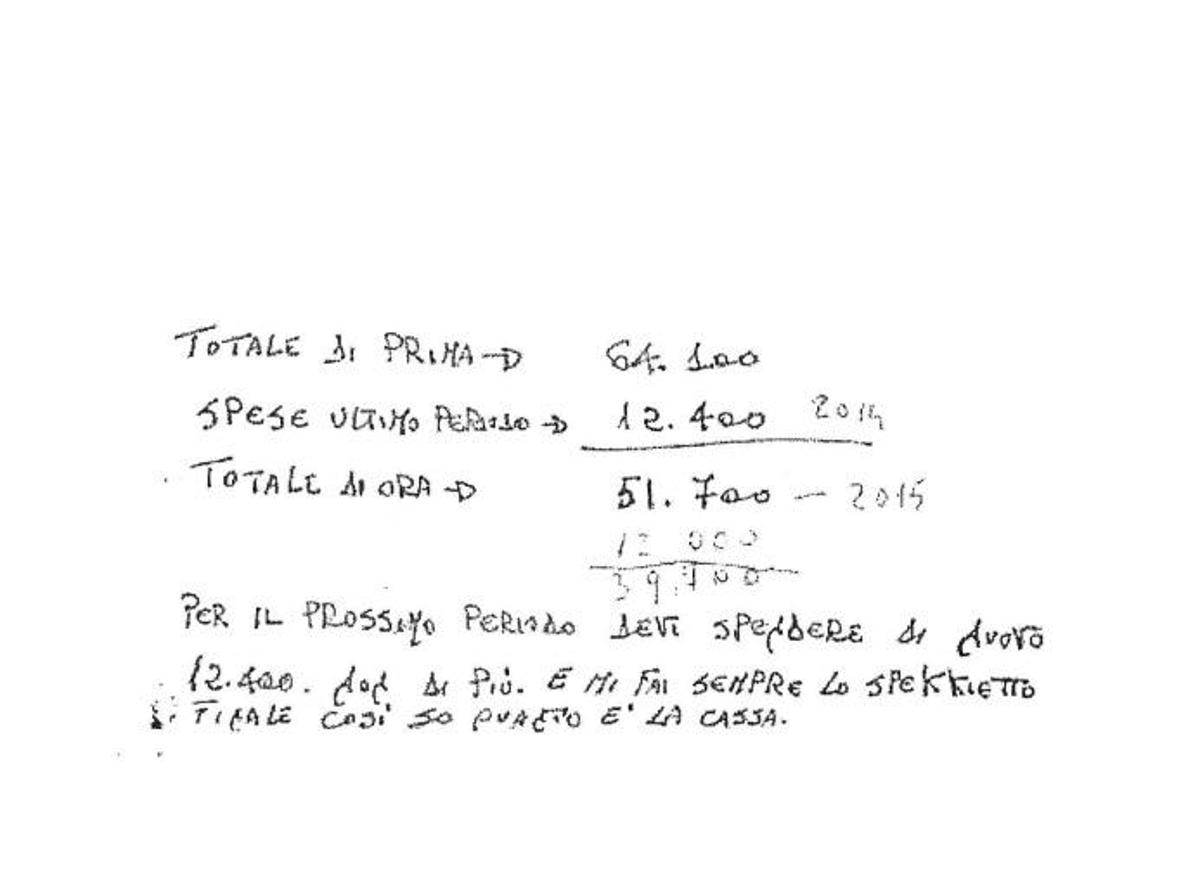 TOTALE DI PRIMA → 64.100
SPESE ULTIMO PERIODO → 12.400 2014
TOTALE DI ORA → 51.700 — 2015
12 000
39.700
PER IL PROSSIMO PERIODO DEVI SPENDERE DI NUOVO
12.400. NON DI PIÙ. E MI FAI SEMPRE LO SPEKKIETTO
FINALE COSÌ SO QUANTO E' LA CASSA.